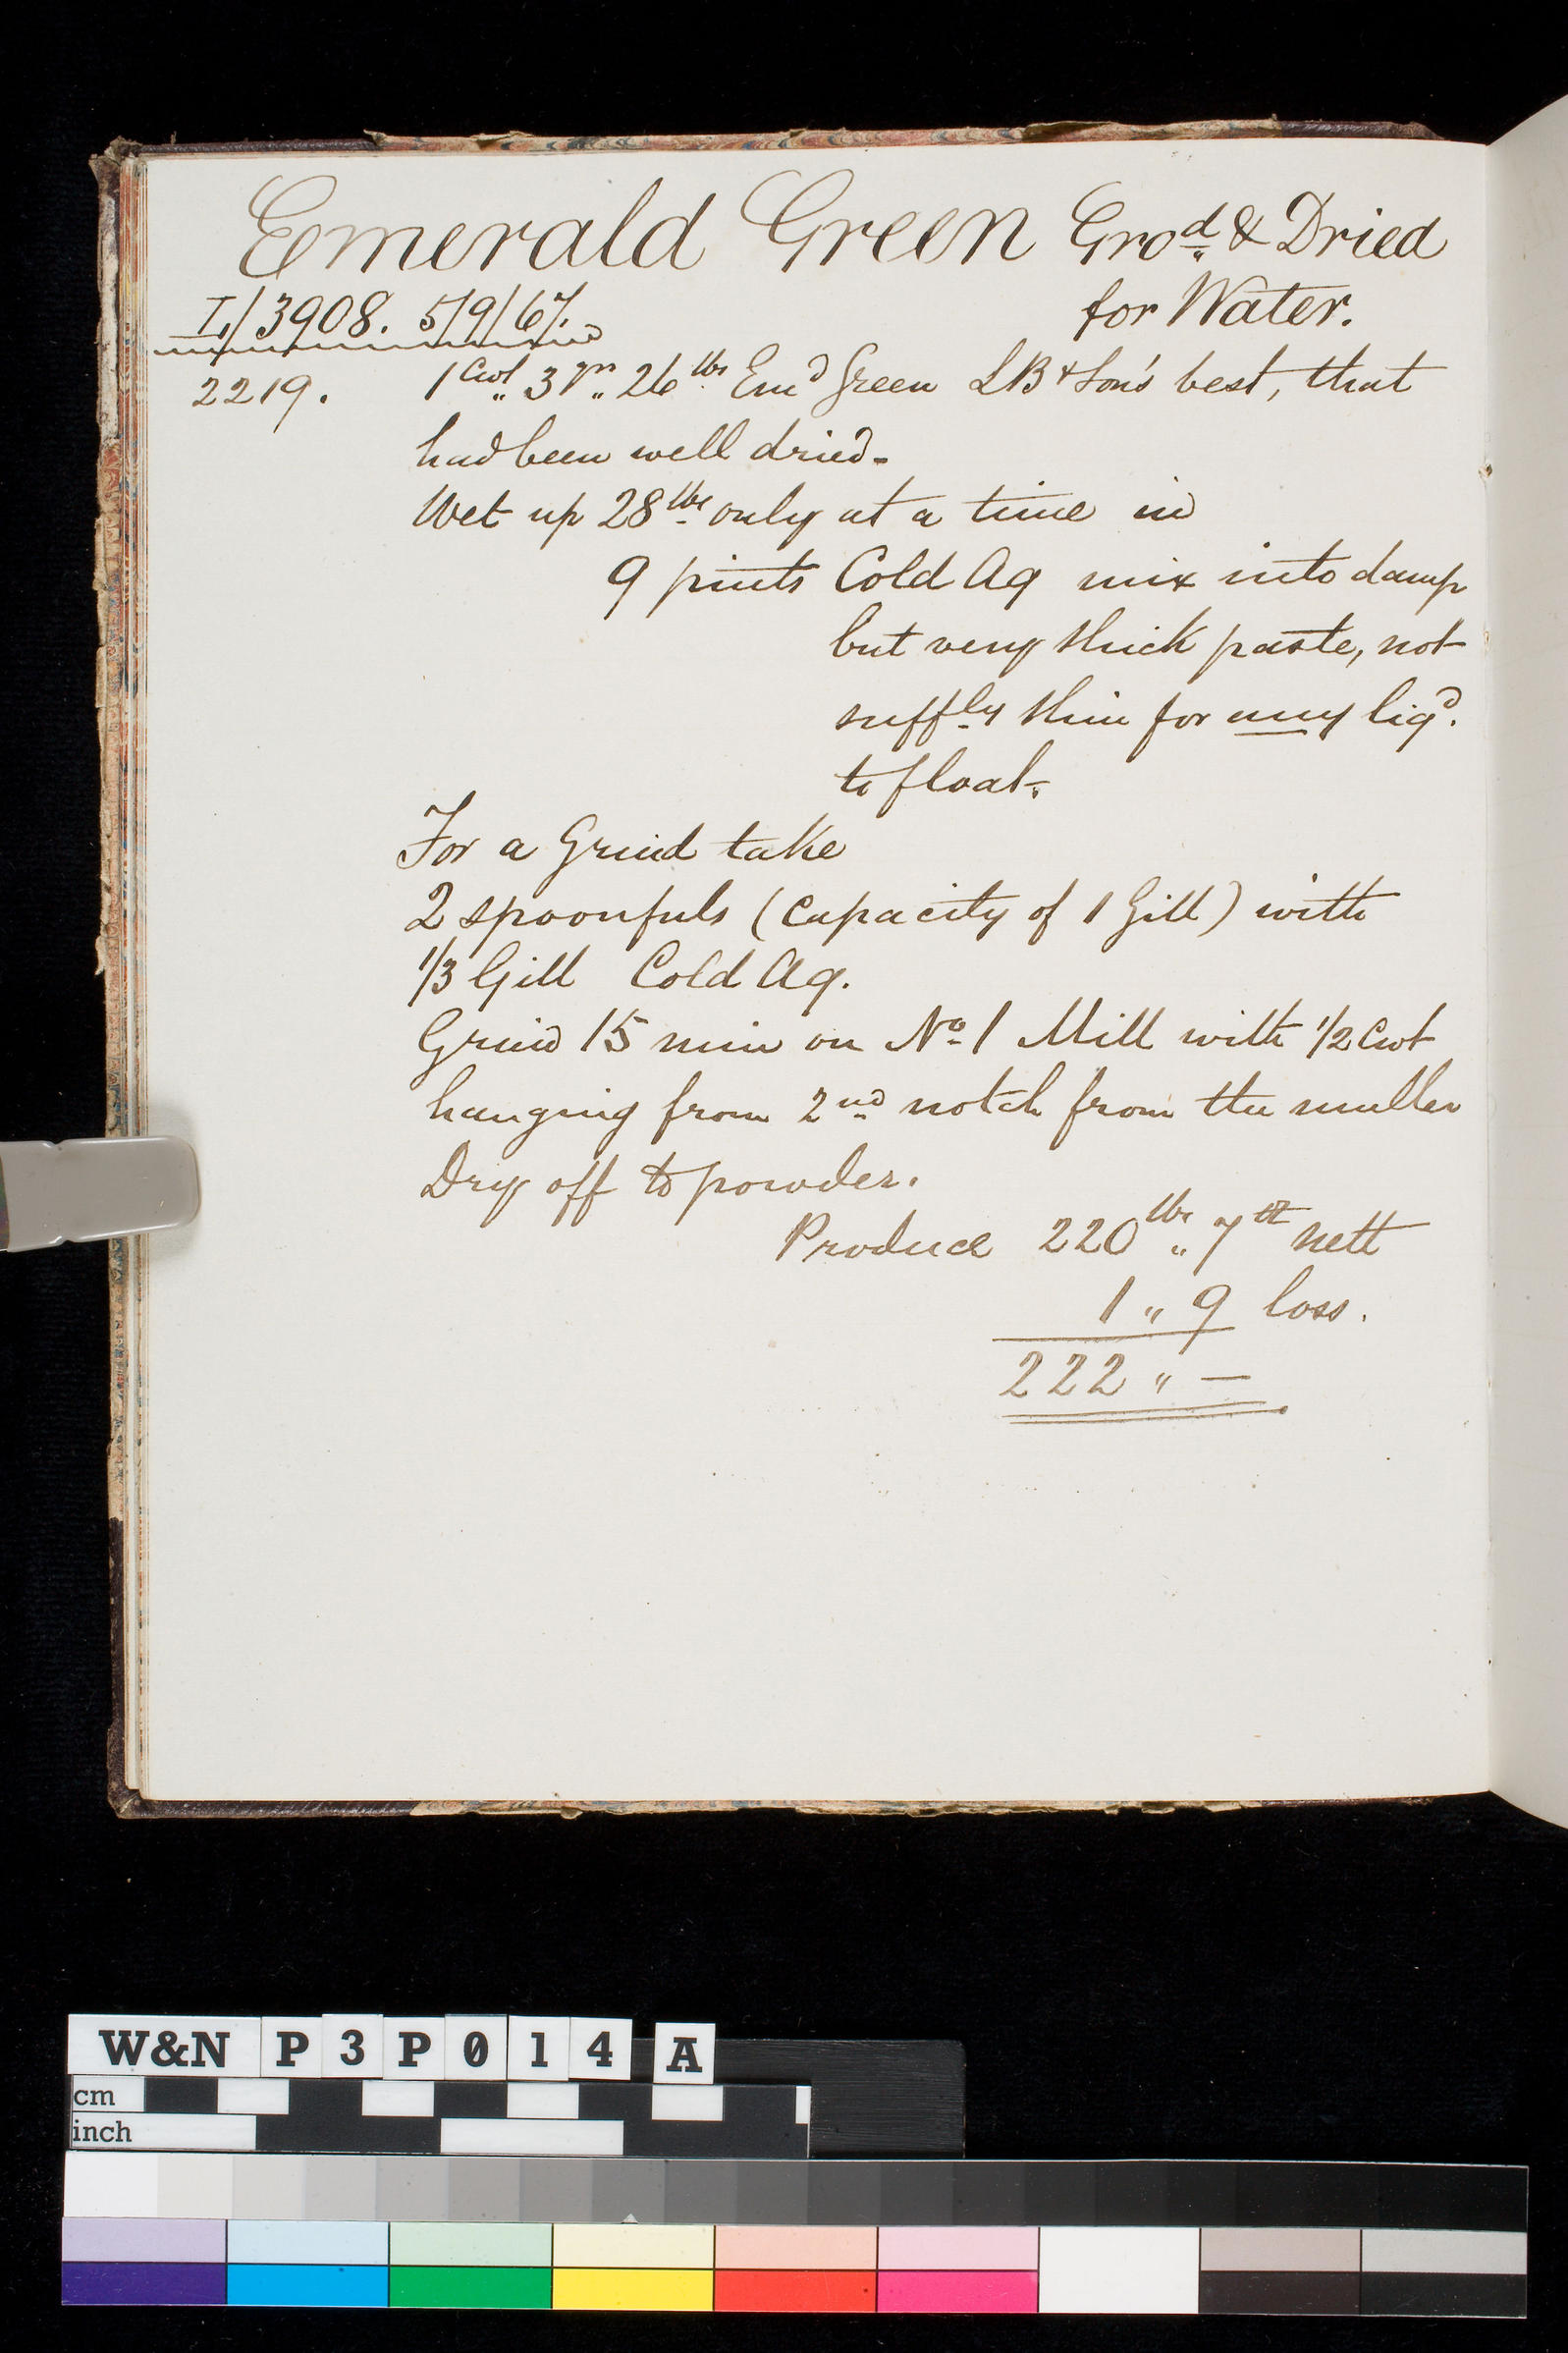 Emerald Green Gro^d & Dried
for Water.
I/3908. 5/9/67.
2219. 1 Cwt " 3 qrs " 26 lbs Em^d Green LB & Son's best, that
had been well dried -
Wet up 28 lbs only at a time in
9 pints Cold Aq mix into damp
but very thick paste, not
suff^ly thin for any liq^d.
to float.
For a Grind take
2 spoonfuls (Capacity of 1 Gill) with
1/3 Gill Cold Aq.
Grind 15 min on No 1 Mill with 1/2 Cwt
hanging from 2nd notch from the muller
Dry off to powder.
Produce 220 lbs " 7 nett
1 " 9 loss.
222 " —
W&N P3P014 A
cm
inch